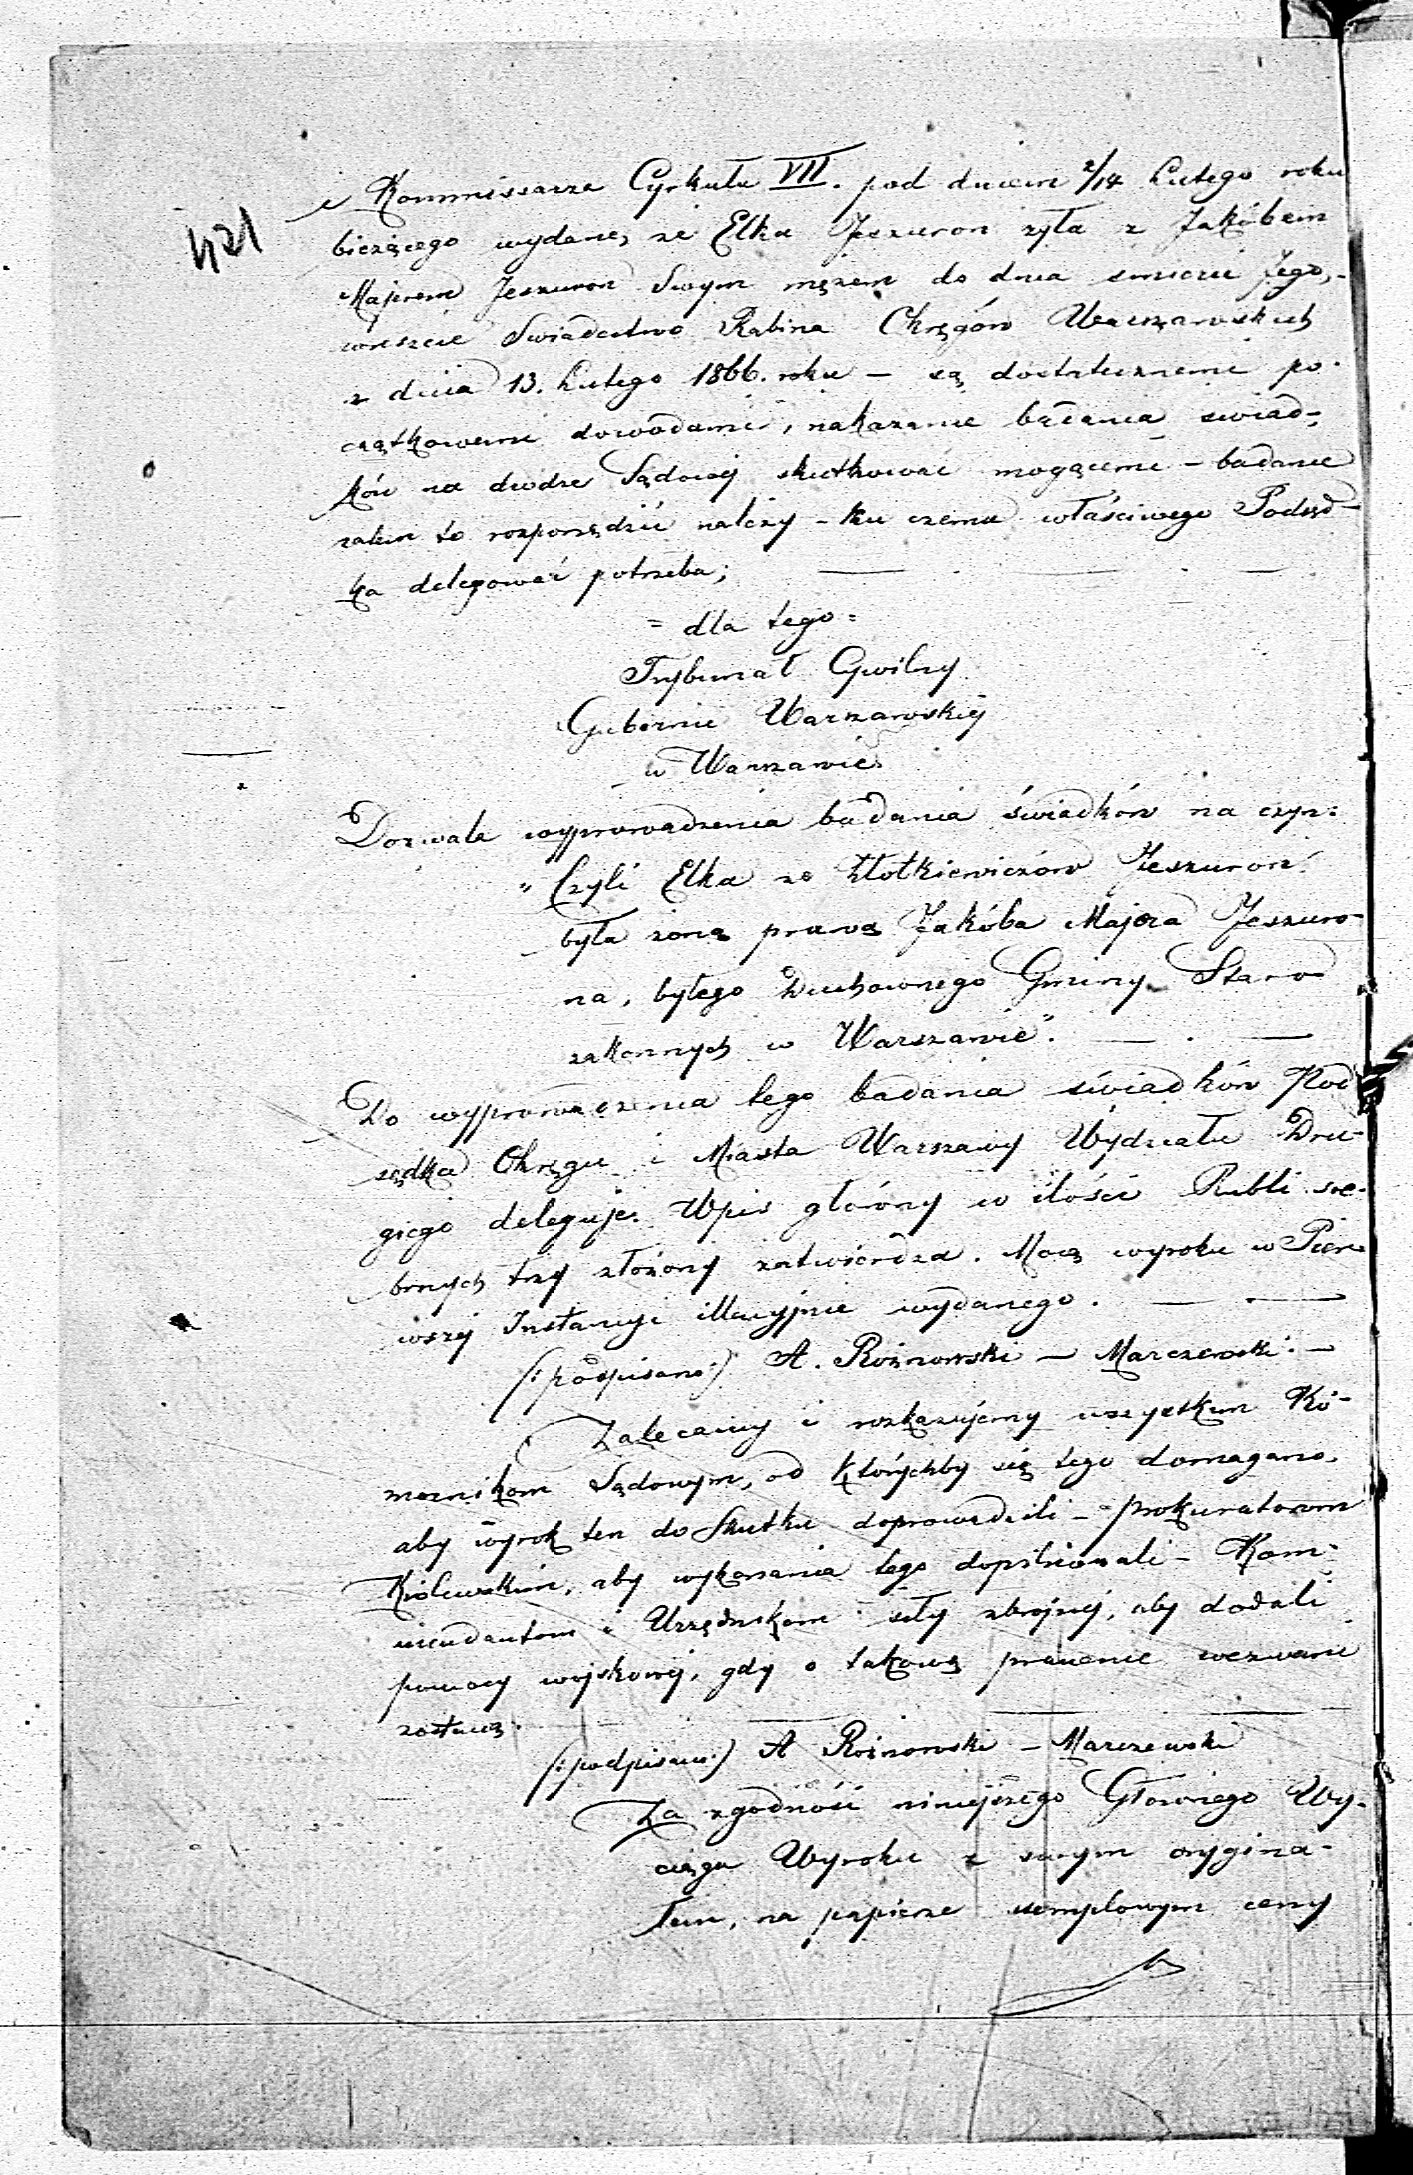 421
i Kommissarza Cyrkułu VII. pod dniem 2/14 Lutego roku
bieżącego wydane, że Elka Jeszuron żyła z Jakóbem
Majerem Jeszuron swym mężem do dnia śmierci jego,-
wreszcie Świadectwo Rabina Okręgów Warszawskich
z dnia 13. Lutego 1866. roku — są dostatecznemi po-
czątkowemi dowodami, nakazanie badania świad-
ków na drodze Sądowej skutkować mogącemi — badanie
zatem to rozporządzić należy — ku czemu właściwego Podsęd-
ka delegować potrzeba;
= dla tego =
Trybunał Cywilny
Gubernii Warszawskiej
w Warszawie
Dozwala wyprowadzenia badania świadków na czyn:
„Czyli Elka ze Złotkiewiczów Jeszuron
była żoną prawą Jakóba Majera Jeszuro-
na, byłego Duchownego Gminy Staro
zakonnych w Warszawie".
Do wyprowadzenia tego badania świadków Pod
sędka Okręgu i Miasta Warszawy Wydziału Dru-
giego deleguje. Wpis główny w ilości Rubli sre-
brnych trzy złożony zatwierdza. Mocą wyroku w Pier-
wszej Instancyi illacyjnie wydanego.
(:podpisano:) A. Roźnowski — Marczewski. —
Zalecamy i rozkazujemy wszystkim Ko-
mornikom Sądowym, od którychby się tego domagano,
aby wyrok ten do skutku doprowadzili — Prokuratorom
Królewskim, aby wykonania tego dopilnowali — Kom-
mendantom i Urzędnikom siły zbrojnej, aby dodali
pomocy wojskowej, gdy o takową prawnie wezwani
zostaną.
(:podpisano:) A Roźnowski — Marczewski
Za zgodność niniejszego Głównego Wy-
ciągu Wyroku z swym orygina-
łem, na papierze stemplowym ceny